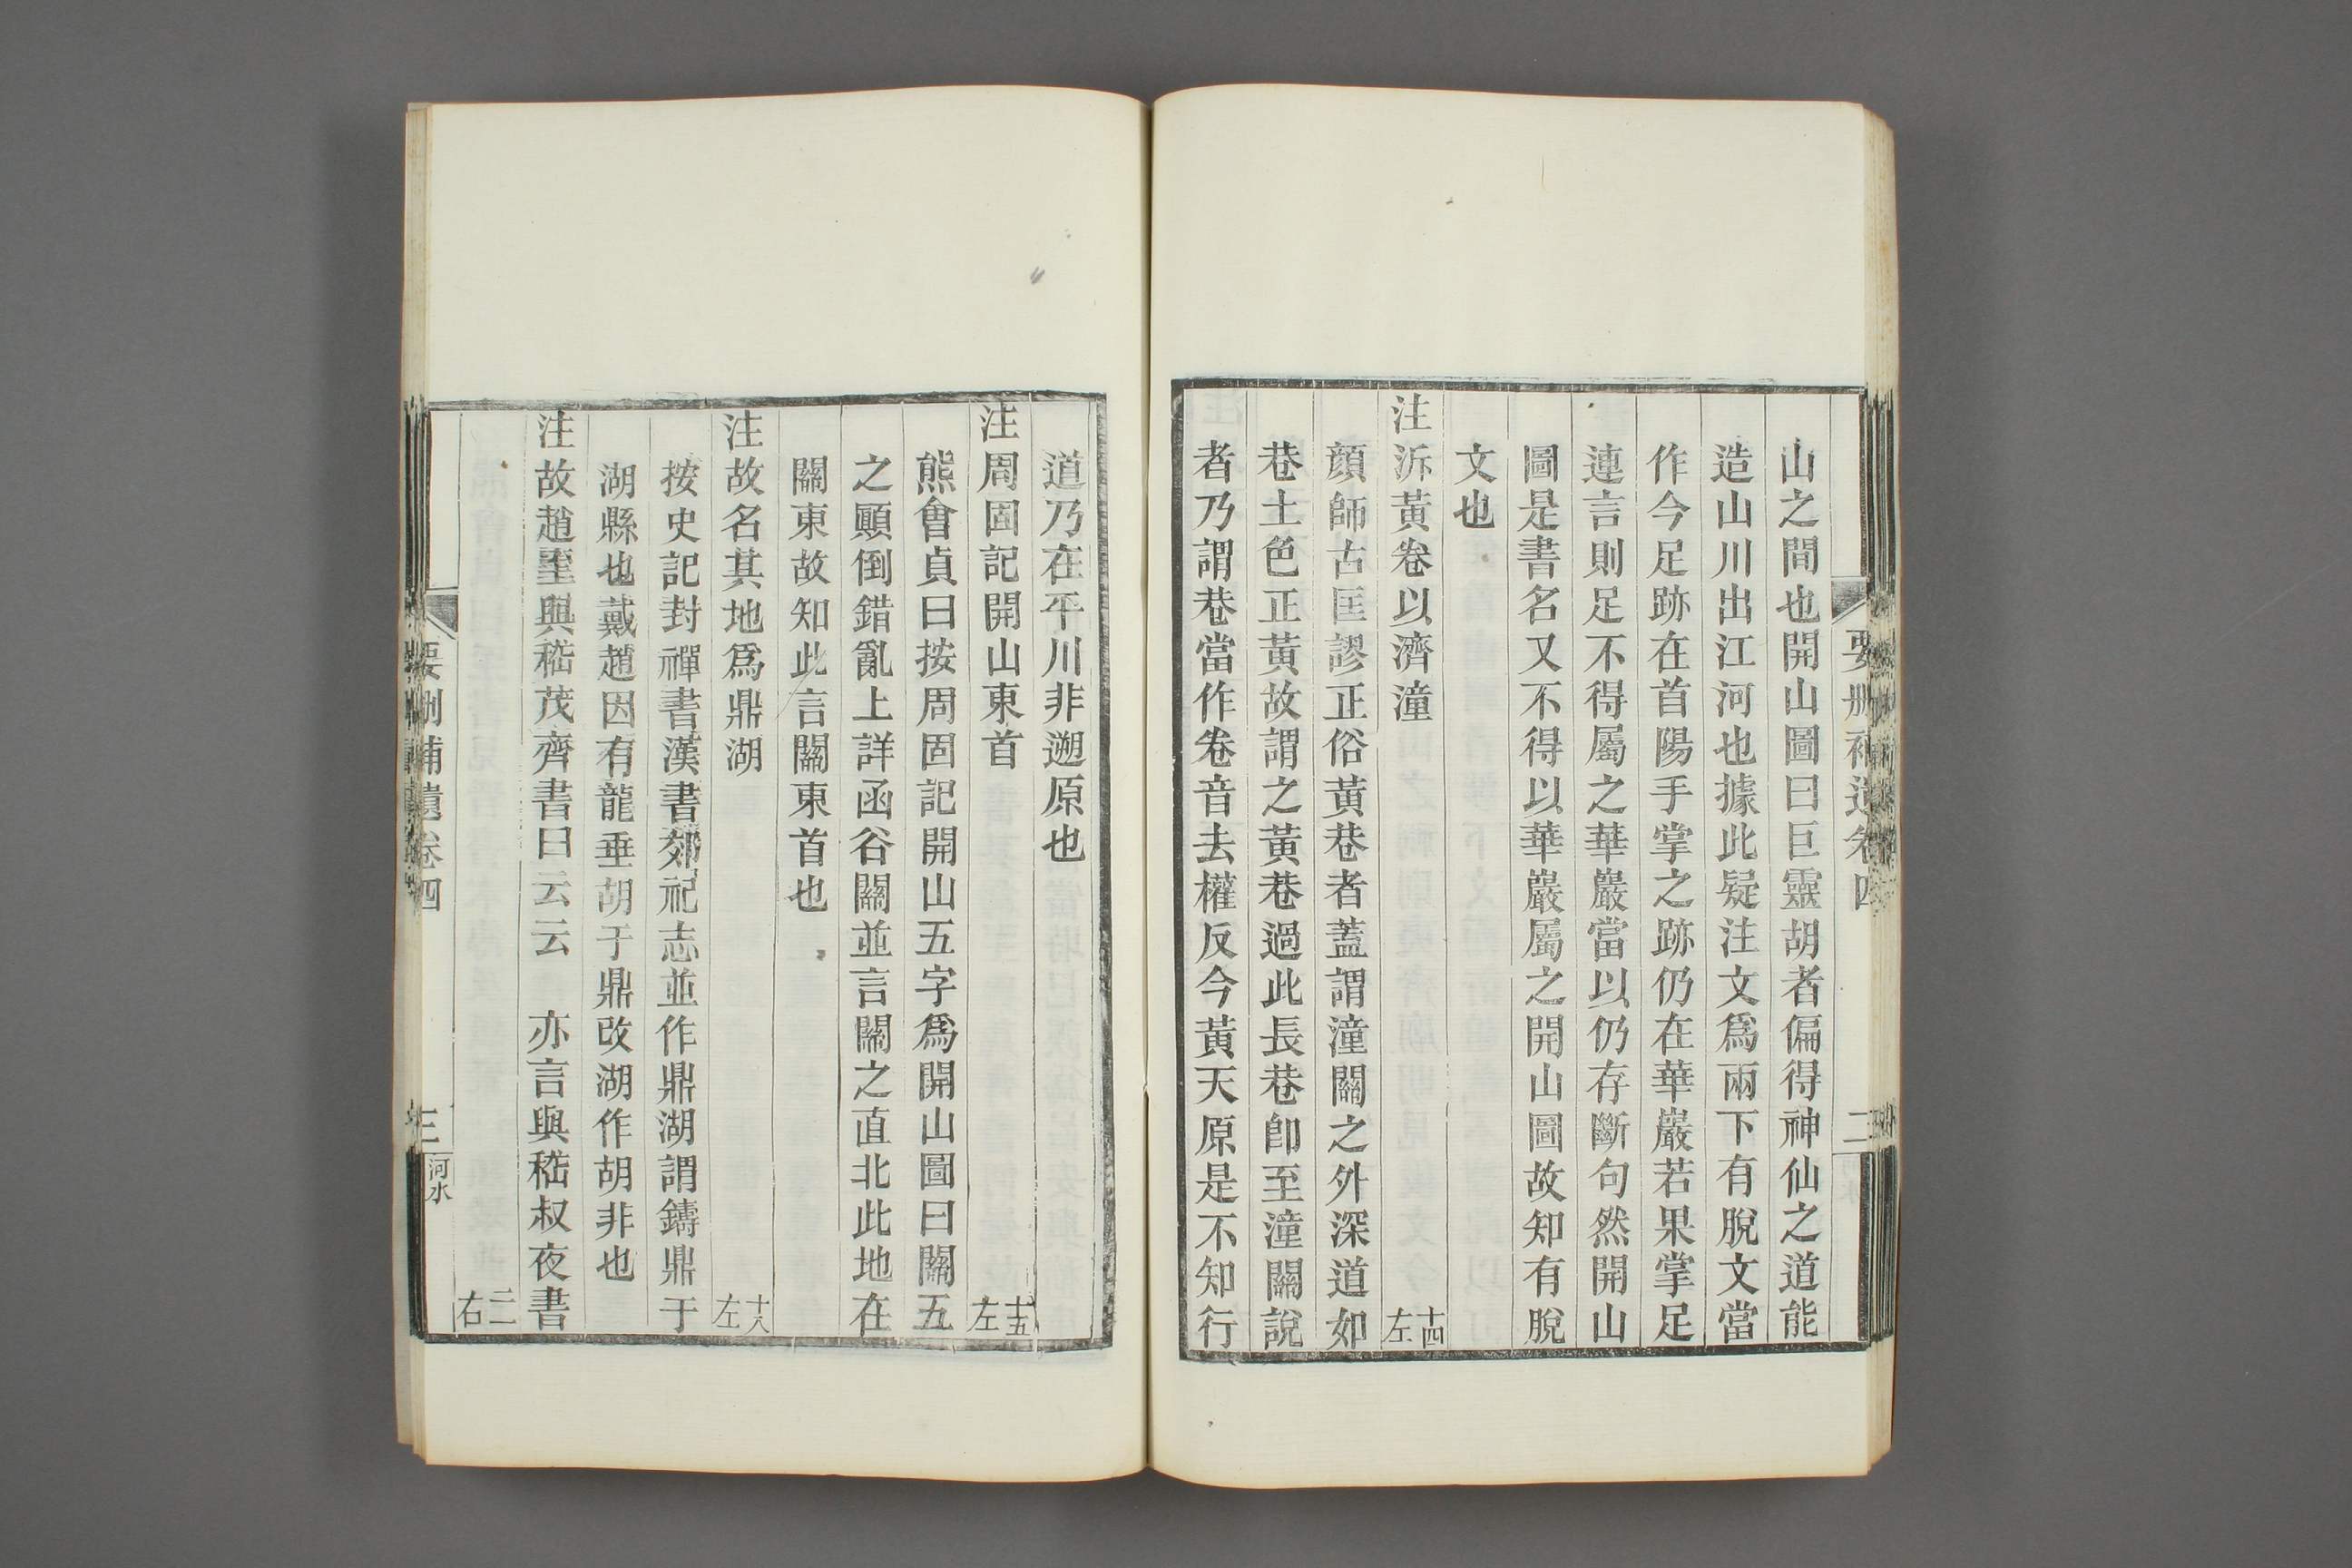 要刪補遺卷四
二
山之間也開山圖曰巨靈胡者偏得神仙之道能
造山川出江河也據此疑注文爲兩下有脫文當
作今足跡在首陽手掌之跡仍在華巖若果掌足
連言則足不得屬之華巖當以仍存斷句然開山
圖是書名又不得以華巖屬之開山圖故知有脫
文也
注泝黃卷以濟潼 十四左
顔師古匡謬正俗黃巷者蓋謂潼關之外深道如
巷土色正黃故謂之黃巷過此長巷卽至潼關說
者乃謂巷當作卷音去權反今黃天原是不知行
道乃在平川非遡原也
注周固記開山東首 十五左
熊會貞曰按周固記開山五字爲開山圖曰關五
之顚倒錯亂上詳函谷關並言關之直北此地在
關東故知此言關東首也
注故名其地爲鼎湖 十八左
按史記封禪書漢書郊祀志並作鼎湖謂鑄鼎于
湖縣也戴趙因有龍垂胡于鼎改湖作胡非也
注故趙㙷與嵇茂齊書曰云云　亦言與嵇叔夜書
二二右
要刪補遺卷四
三
河水